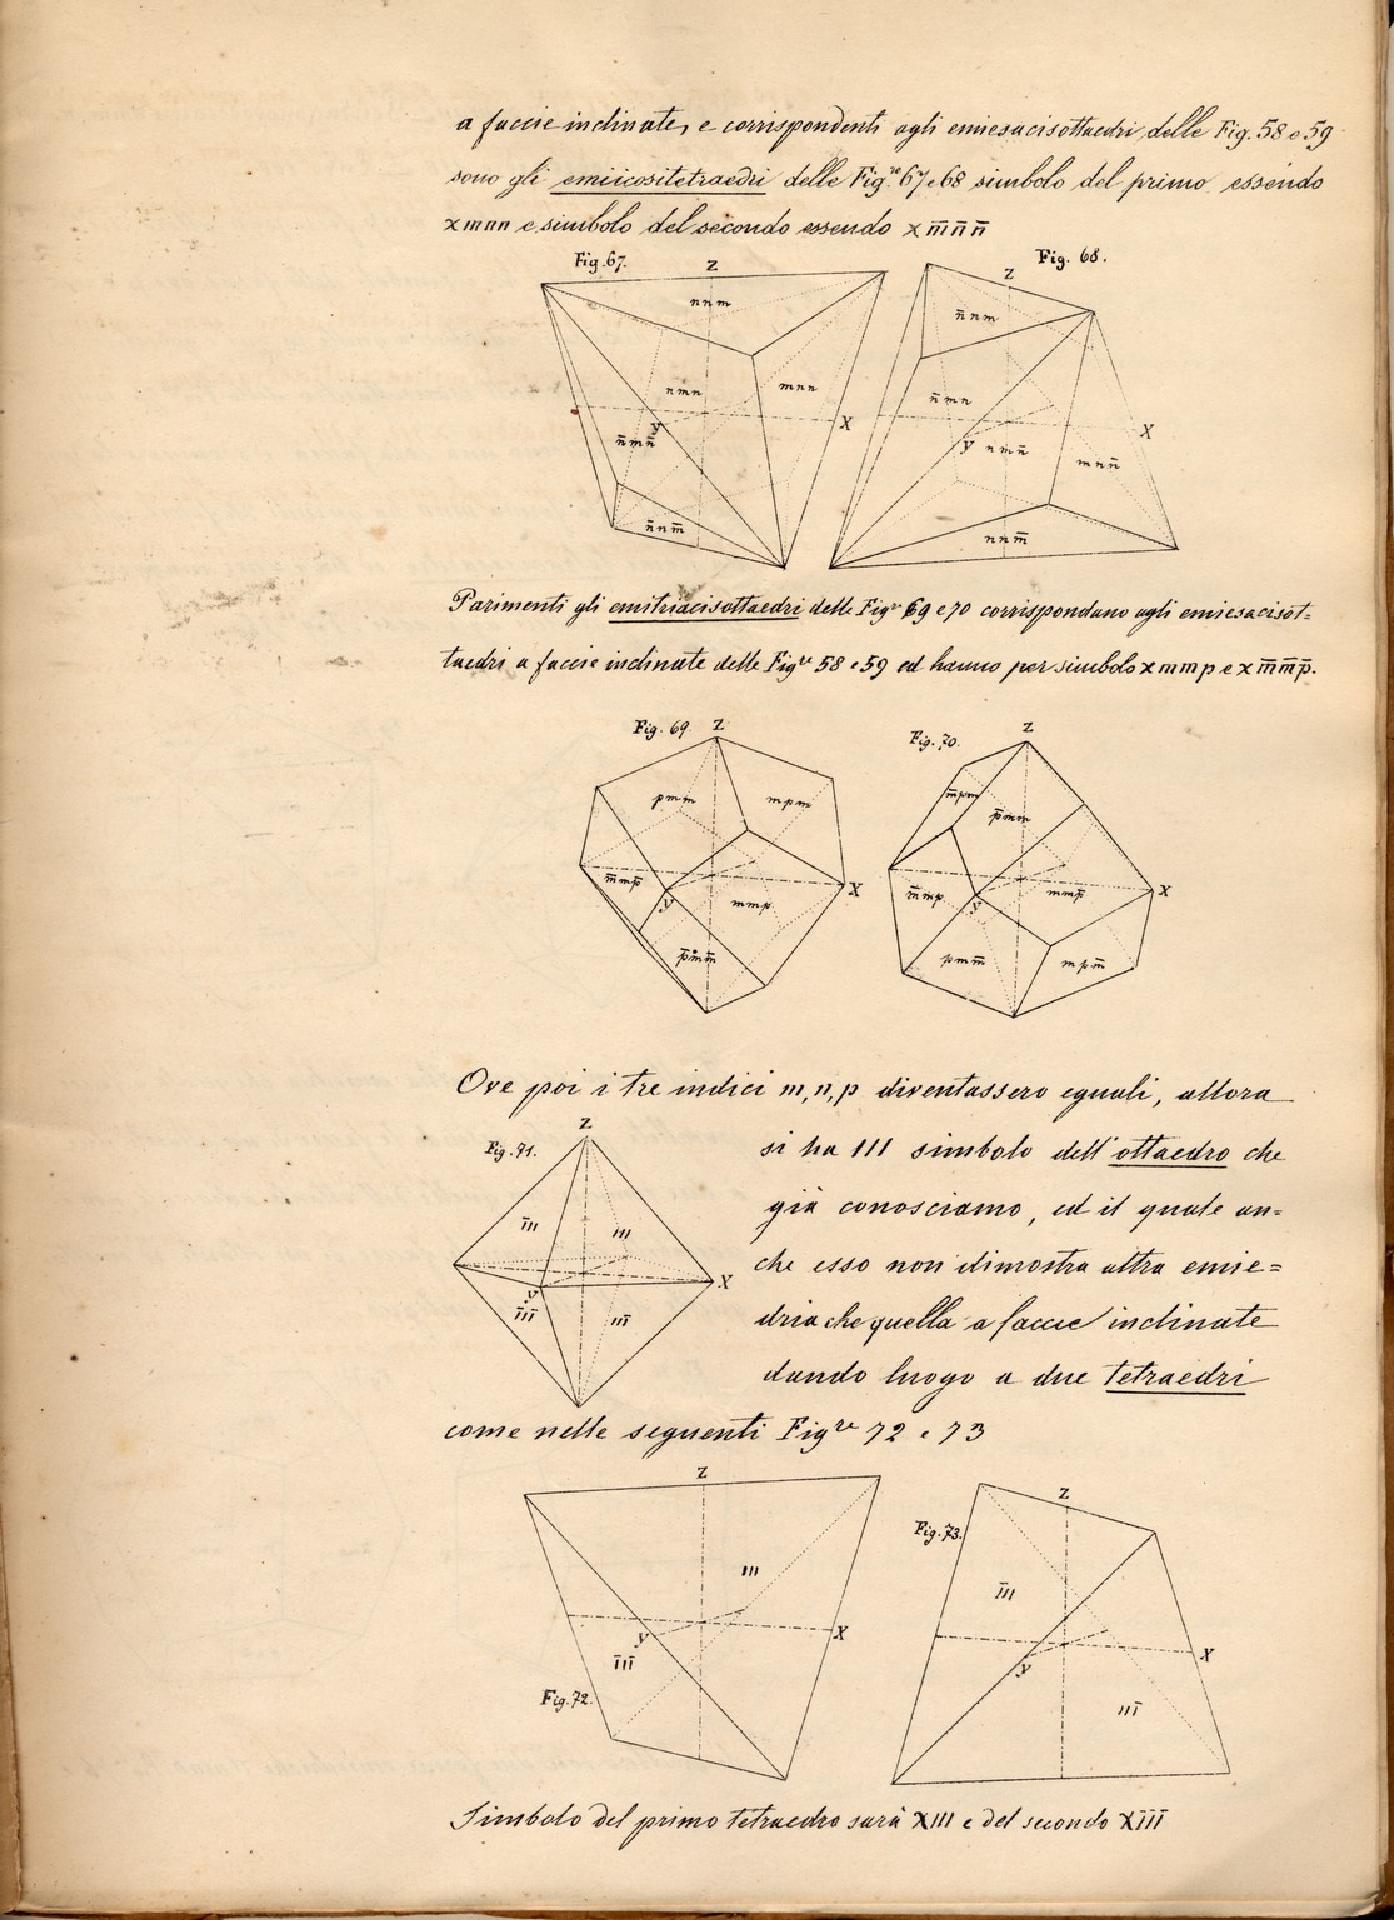 a faccie inclinate, e corrispondenti agli emiesacisottaedri delle Fig. 58 e 59
sono gli emiicositetraedri delle Fig.re 67 e 68 simbolo del primo essendo
x m n n e simbolo del secondo essendo x m̄ n̄ n̄
Fig. 67.
Z
n n m
n m n
m n n
X
y
n̄ m n̄
n̄ n m̄
Fig. 68.
Z
n̄ n m
n̄ m n
X
y
n m n̄
m n n̄
n n m̄
Parimenti gli emitriacisottaedri delle Figre 69 e 70 corrispondano agli emiesacisot=
taedri a faccie inclinate delle Figre 58 e 59 ed hanno per simbolo x m m p e x m̄ m̄ p̄.
Fig. 69.
Z
p m m
m p m
X
m̄ m p̄
y
m m p
p̄ m m̄
Fig. 70.
Z
m̄ p m
p̄ m m
X
m̄ m p
y
m m p̄
p m m̄
m p m̄
Ove poi i tre indici m, n, p diventassero eguali, allora
Fig. 71.
Z
1̄11
111
X
y
1̄11̄
111̄
si ha 111 simbolo dell' ottaedro che
già conosciamo, ed il quale an=
che esso non dimostra altra emie=
dria che quella a faccie inclinate
dando luogo a due tetraedri
come nelle seguenti Figre 72 e 73
Z
111
X
y
1̄11̄
Fig. 72.
Z
Fig. 73.
1̄11
X
y
111̄
Simbolo del primo tetraedro sarà X111 e del secondo X1̄1̄1̄